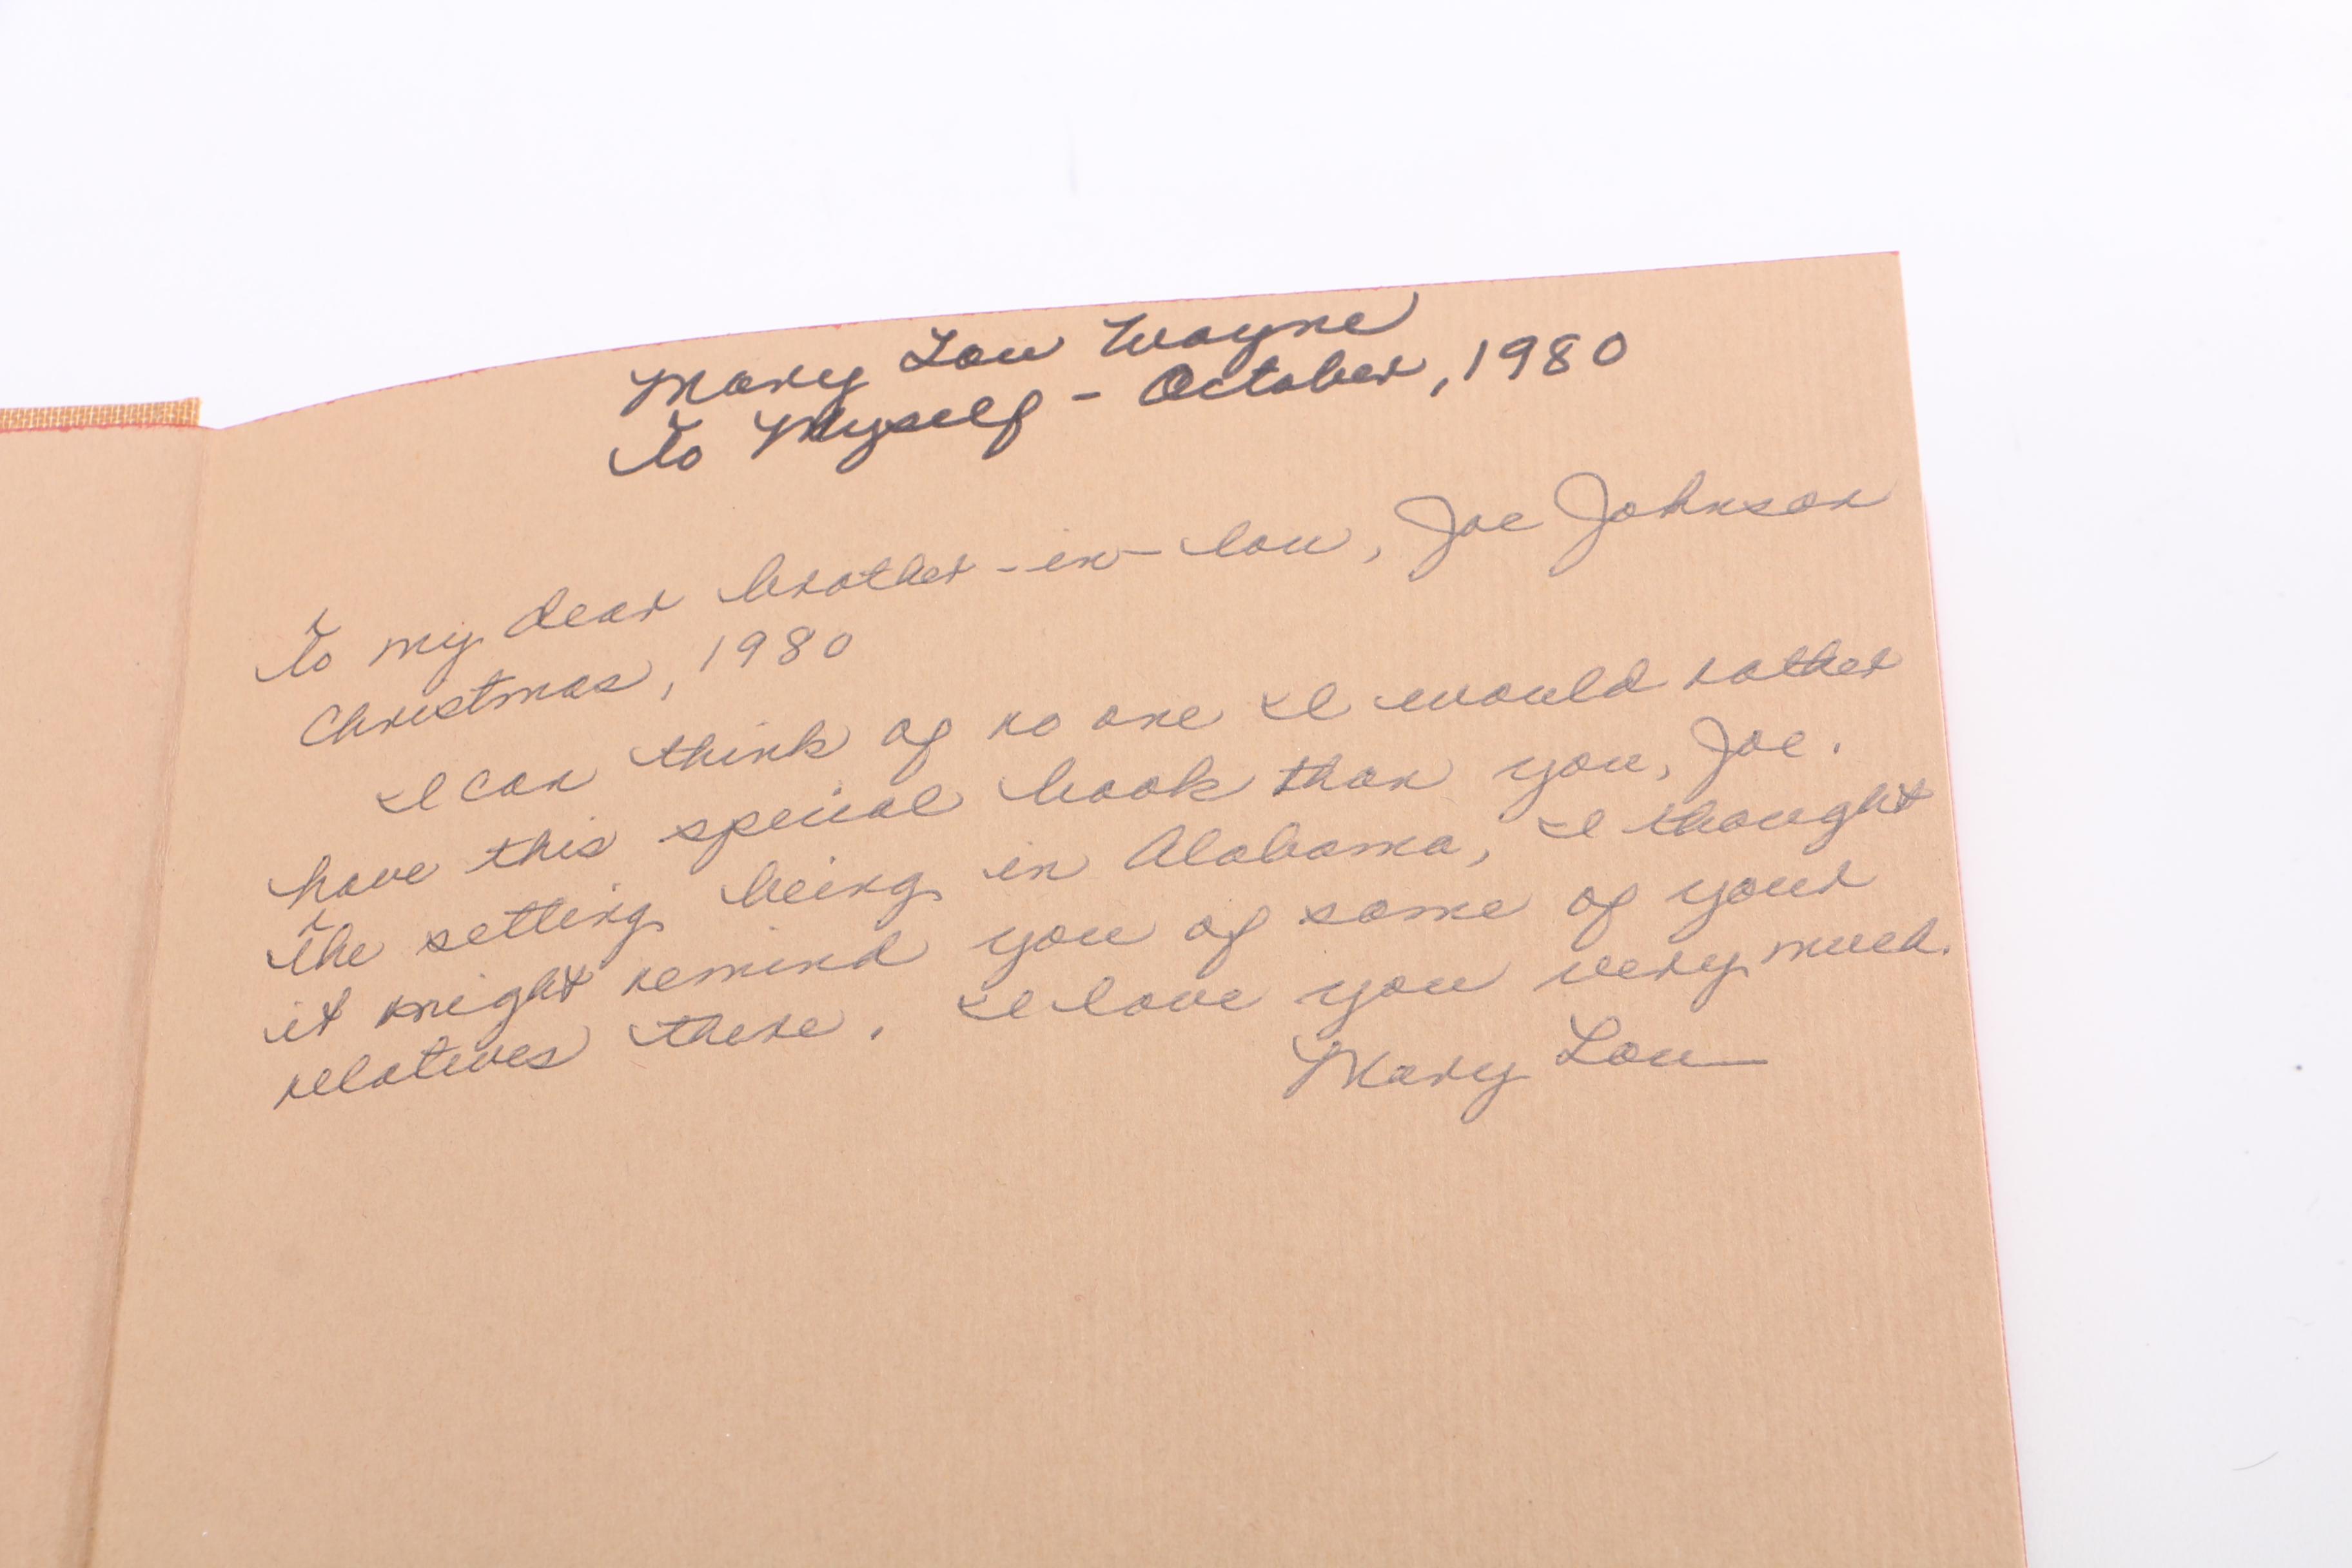 Mary Lou Wayne
To Myself - October, 1980
To my dear brother-in-law, Joe Johnson
Christmas, 1980
I can think of no one I would rather
have this special book than you, Joe.
The setting being in Alabama, I thought
it might remind you of some of your
relatives there. I love you very much.
Mary Lou